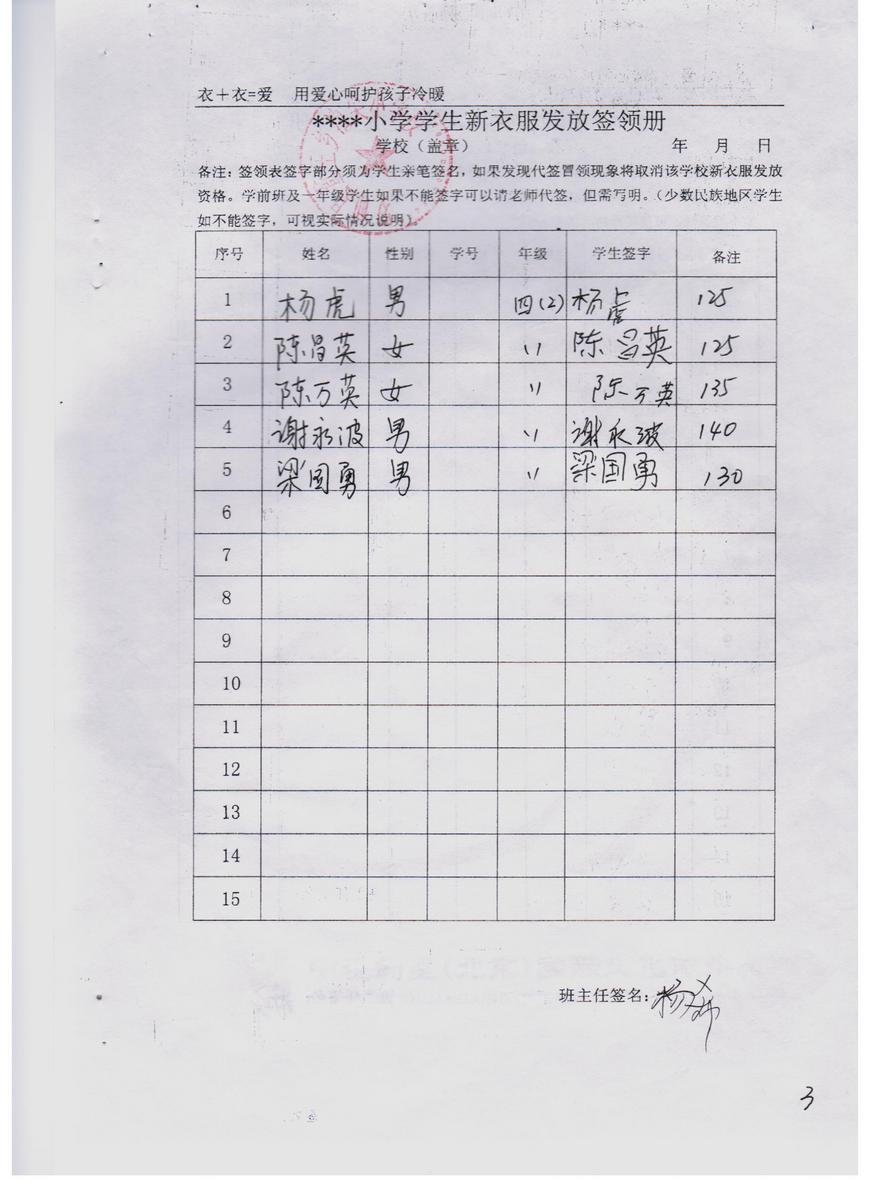 衣＋衣=爱 用爱心呵护孩子冷暖
****小学学生新衣服发放签领册
学校（盖章） 年 月 日
备注：签领表签字部分须为学生亲笔签名，如果发现代签冒领现象将取消该学校新衣服发放
资格。学前班及一年级学生如果不能签字可以请老师代签，但需写明。（少数民族地区学生
如不能签字，可视实际情况说明）。
序号 姓名 性别 学号 年级 学生签字 备注
1 杨虎 男 四(2) 杨虎 125
2 陈昌英 女 〃 陈昌英 125
3 陈万英 女 〃 陈万英 135
4 谢永波 男 〃 谢永波 140
5 梁国勇 男 〃 梁国勇 130
6
7
8
9
10
11
12
13
14
15
班主任签名：杨
3